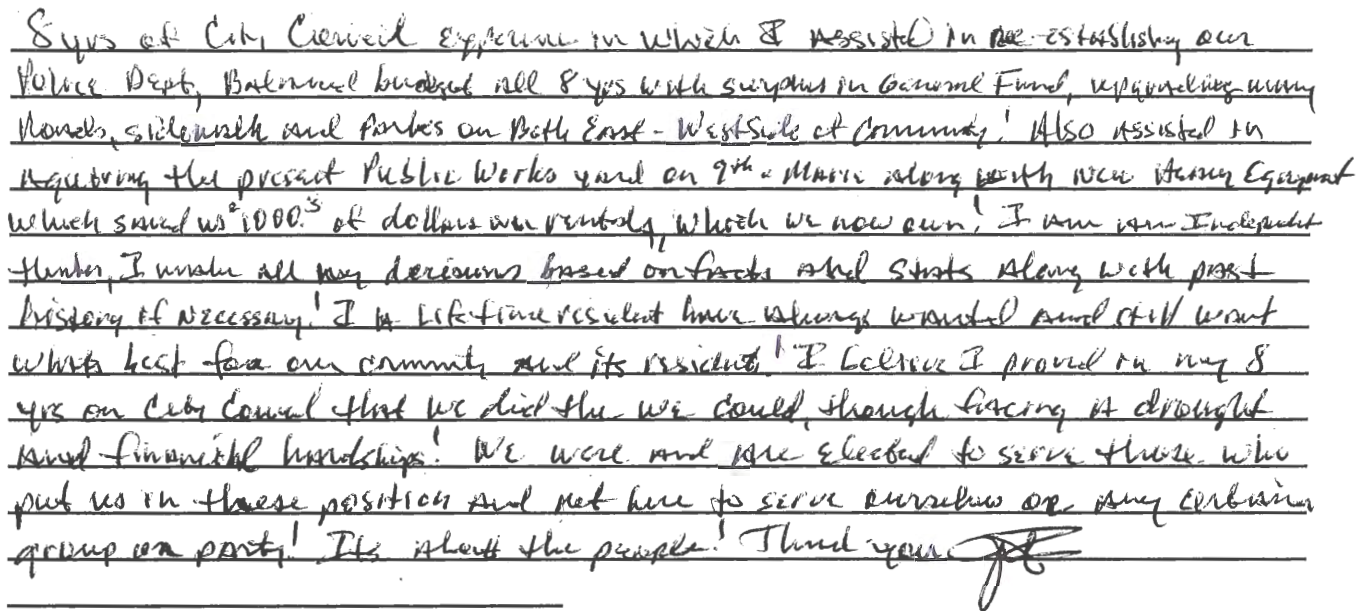 8 yrs of City Council experience in which I assisted in re-establishing our
Police Dept, Balanced budget all 8 yrs with surplus in General Fund, upgrading many
Roads, sidewalk and Parks on Both East - WestSide of Community! Also assisted in
aquiring the present Public Works yard on 9th & Marie along with new Heavy Equipment
which saved us "1000.'s of dollars over rentals, which we now own! I am an Independent
thinker, I make all my decisions based on facts and stats along with past
history if necessary! I a Lifetime resident have always wanted and still want
whats best for our community and its resident! I believe I proved in my 8
yrs on City Council that we did the we could, though facing a drought
and financial hardships! We were and are elected to serve those who
put us in these position and not here to serve ourselves or any certain
group or party! Its about the people! Thank you